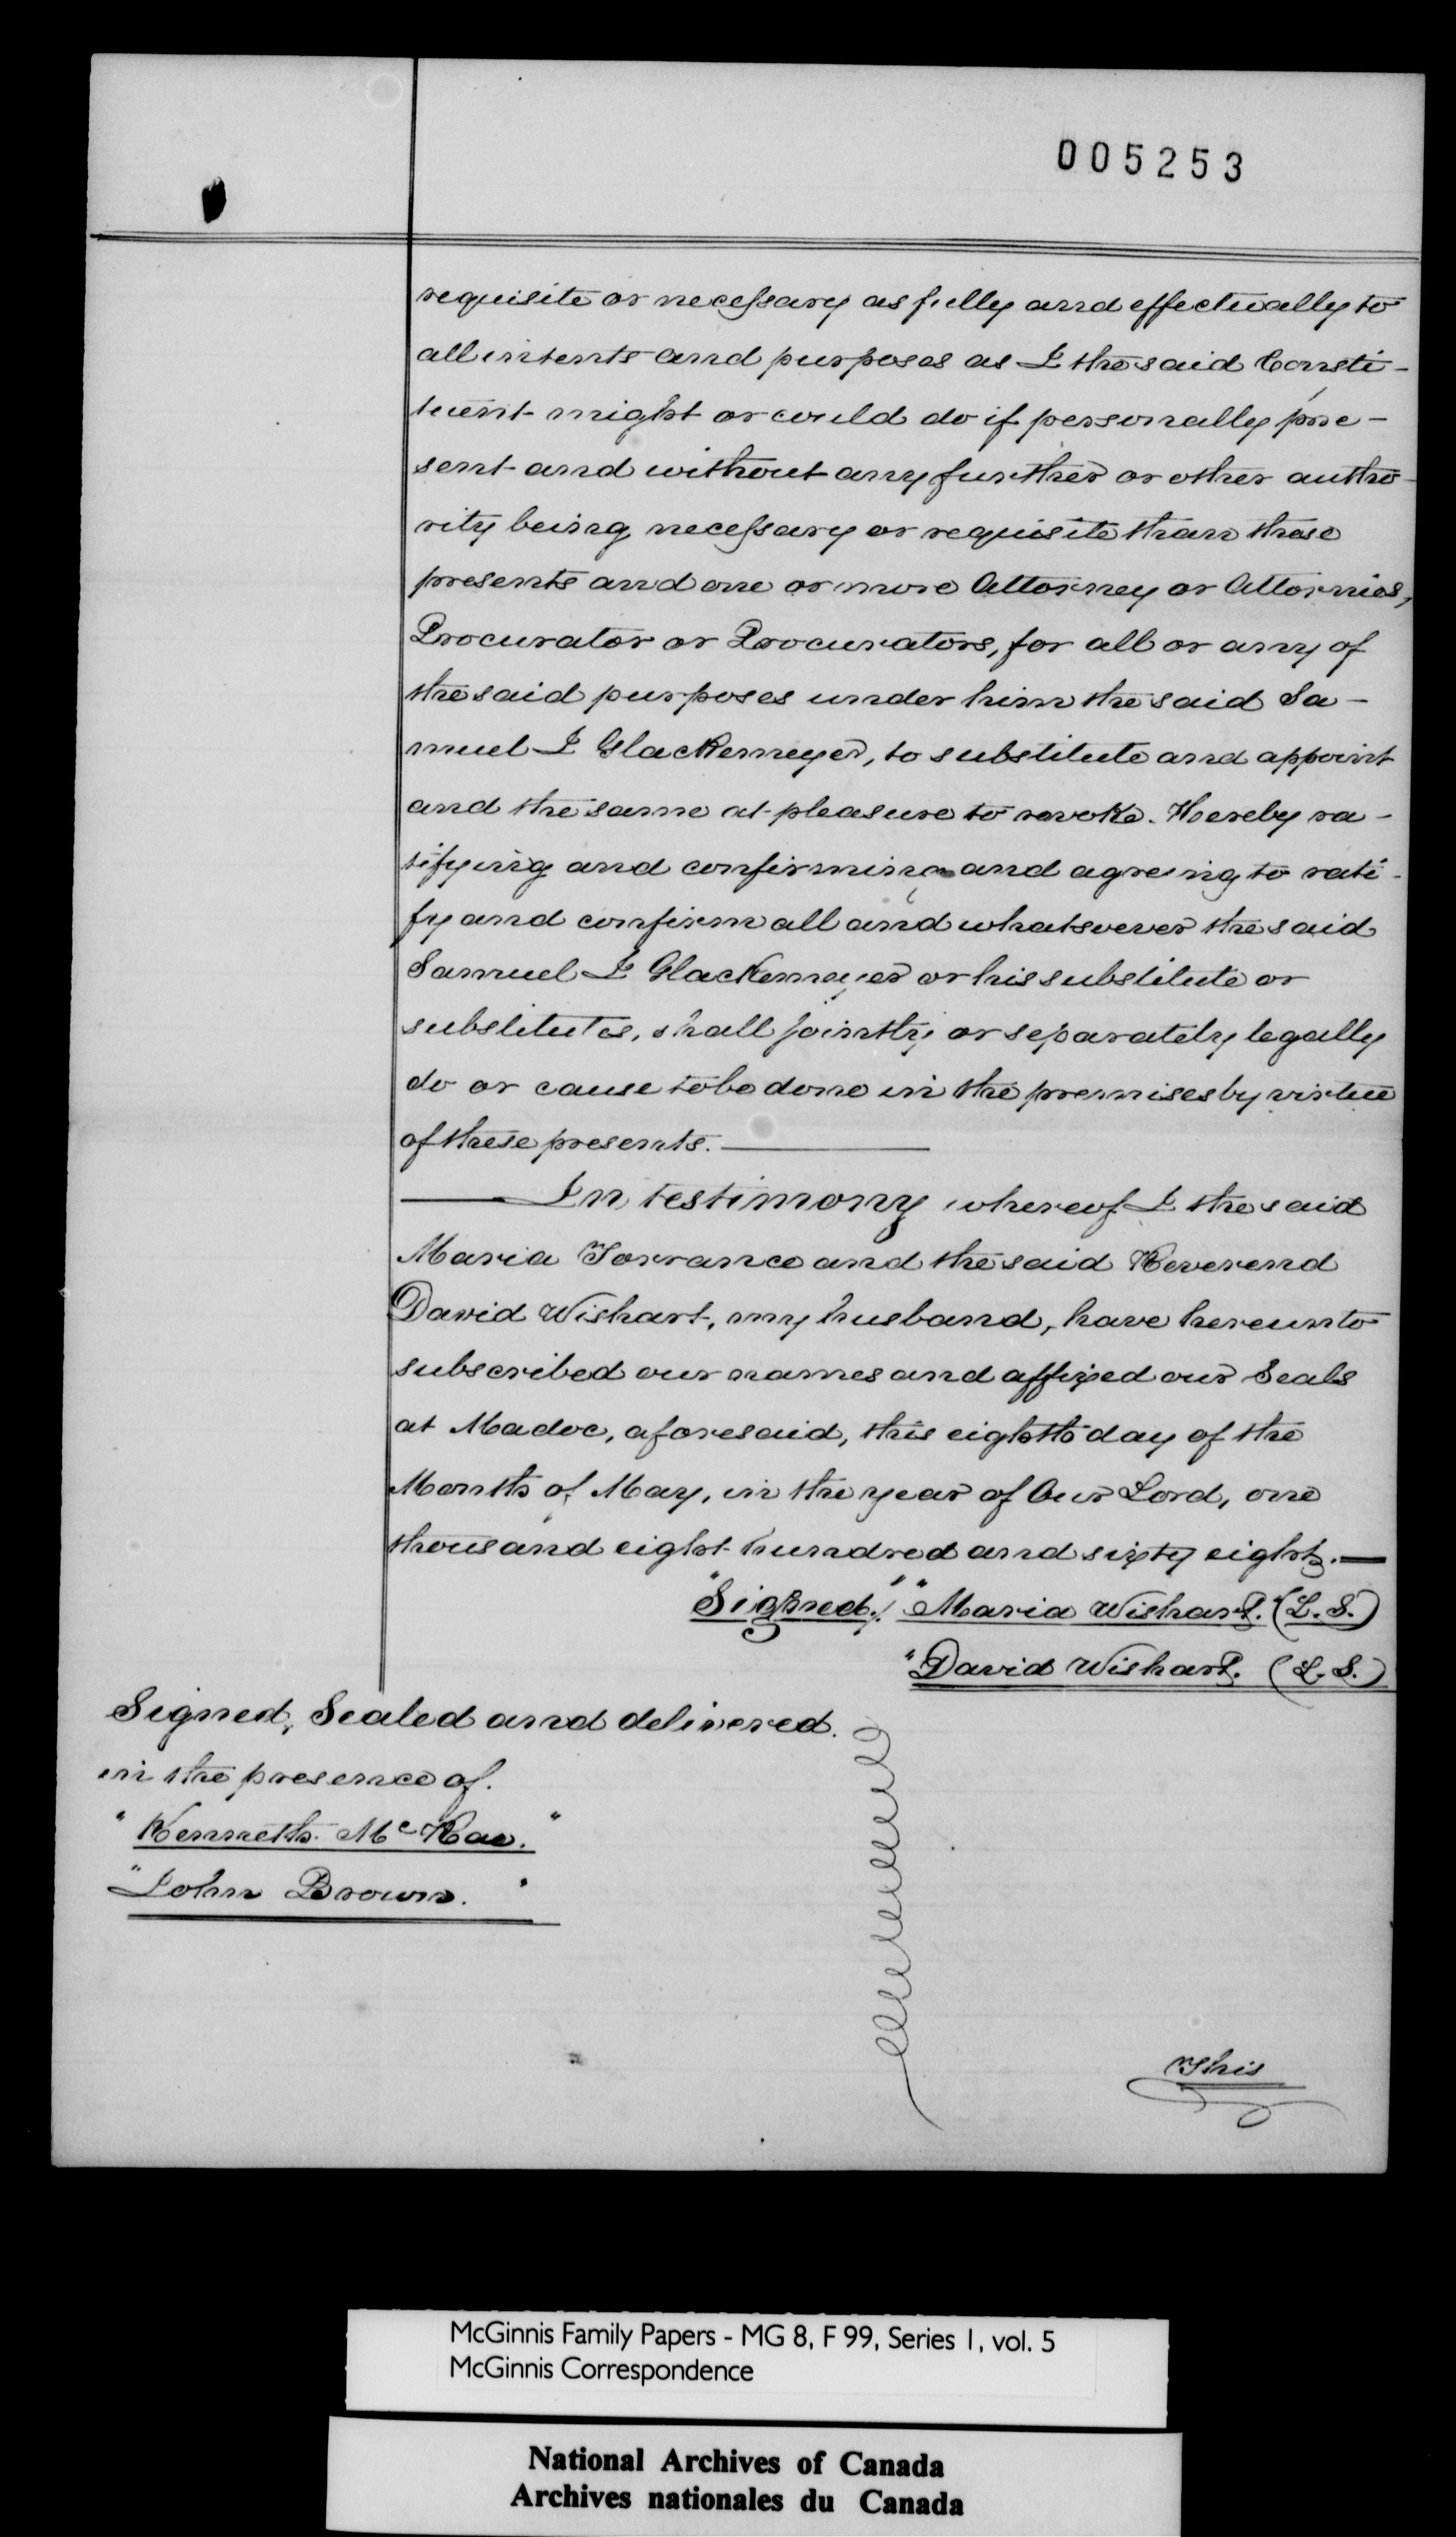 005253
requisite or necessary as fully and effectually to
all intents and purposes as I the said Consti-
tuent might or could do if personally pre-
sent and without any further or other autho-
rity being necessary or requisite than these
presents and one or more Attorney or Attornies,
Procurator or Procurators, for all or any of
the said purposes under him the said Sa-
muel I Glackemeyer, to substitute and appoint
and the same at pleasure to revoke. Hereby ra-
tifying and confirming and agreing to rati-
fy and confirm all and whatsoever the said
Samuel I Glackemeyer or his substitute or
substitutes, shall jointly or separately legally
do or cause to be done in the premises by virtue
of these presents.
In testimony whereof I the said
Maria Torrance and the said Reverend
David Wishart, my husband, have hereunto
subscribed our names and affixed our Seals
at Madoc, aforesaid, this eighth day of the
Month of May, in the year of Our Lord, one
thousand eight hundred and sixty eight.
"Signed." "Maria Wishart." (L.S.)
"David Wishart. (L.S.)
Signed, Sealed and delivered.
in the presence of.
"Kenneth McRae."
"John Brown."
This
McGinnis Family Papers - MG 8, F 99, Series 1, vol. 5
McGinnis Correspondence
National Archives of Canada
Archives nationales du Canada